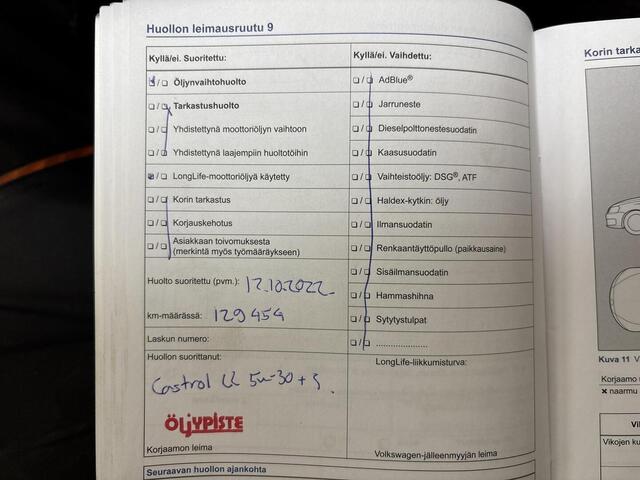 Huollon leimausruutu 9
Kyllä/ei. Suoritettu:
☐/☐ Öljynvaihtohuolto
☐/☐ Tarkastushuolto
☐/☐ Yhdistettynä moottoriöljyn vaihtoon
☐/☐ Yhdistettynä laajempiin huoltotöihin
☐/☐ LongLife-moottoriöljyä käytetty
☐/☐ Korin tarkastus
☐/☐ Korjauskehotus
☐/☐ Asiakkaan toivomuksesta
(merkintä myös työmääräykseen)
Huolto suoritettu (pvm.): 12.10.2022
km-määrässä: 129454
Laskun numero:
Huollon suorittanut:
Castrol 5w-30 + S
ÖLJYPISTE
Korjaamon leima
Kyllä/ei. Vaihdettu:
☐/☐ AdBlue®
☐/☐ Jarruneste
☐/☐ Dieselpolttonestesuodatin
☐/☐ Kaasusuodatin
☐/☐ Vaihteistoöljy: DSG®, ATF
☐/☐ Haldex-kytkin: öljy
☐/☐ Ilmansuodatin
☐/☐ Renkaantäyttöpullo (paikkausaine)
☐/☐ Sisäilmansuodatin
☐/☐ Hammashihna
☐/☐ Sytytystulpat
☐/☐ ......................
LongLife-liikkumisturva:
Volkswagen-jälleenmyyjän leima
Seuraavan huollon ajankohta
Korin tarka
Kuva 11 V
Korjaamo
× naarmu
Vi
Vikojen ku